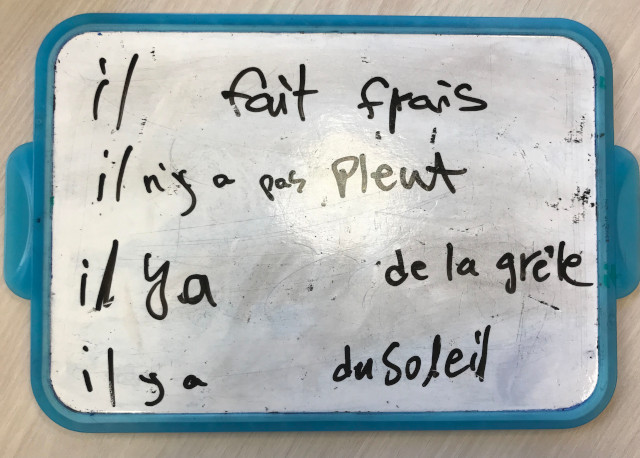 il fait frais
il n'y a pas pleut
il y a de la grêle
il y a du soleil